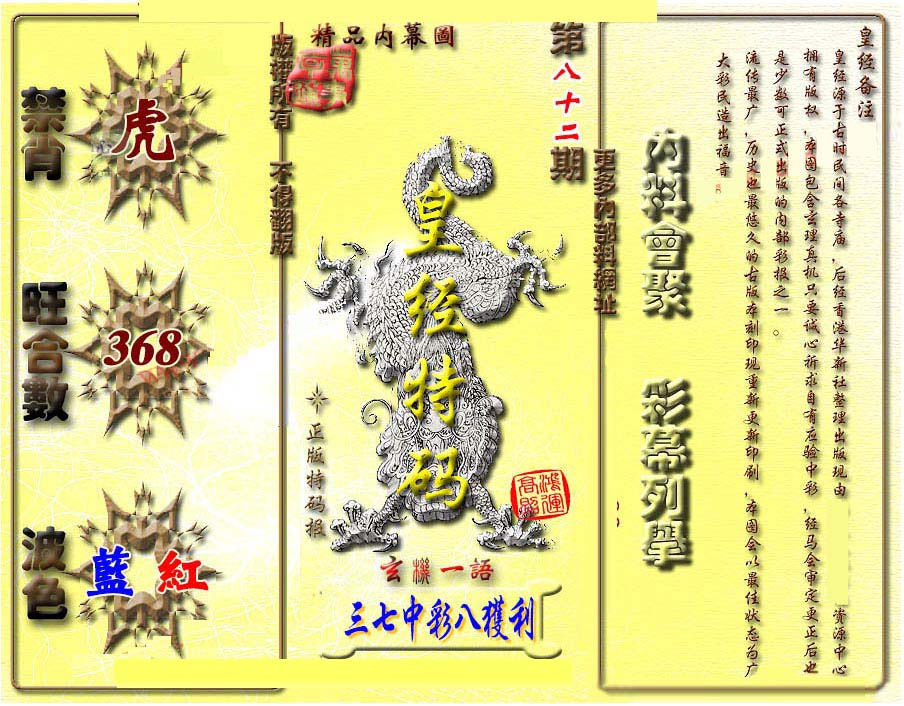 禁肖
虎
旺合數
368
波色
藍 紅
版權所有 不得翻版
精品内幕圖
第八十二期
更多内部料網址
皇经特码
正版特码报
鴻運高照
玄機一語
三七中彩八獲利
内料會聚 彩幕列舉
皇经备注
皇经源于古时民间各寺庙,后经香港华新社整理出版现由 资源中心
拥有版权,本图包含玄理真机只要诚心祈求自有应验中彩,经马会审定更正后也
是少数可正式出版的内部彩报之一。
流传最广,历史也最悠久的古版本刻印现重新更新印刷,本图会以最佳状态为广
大彩民造出福音